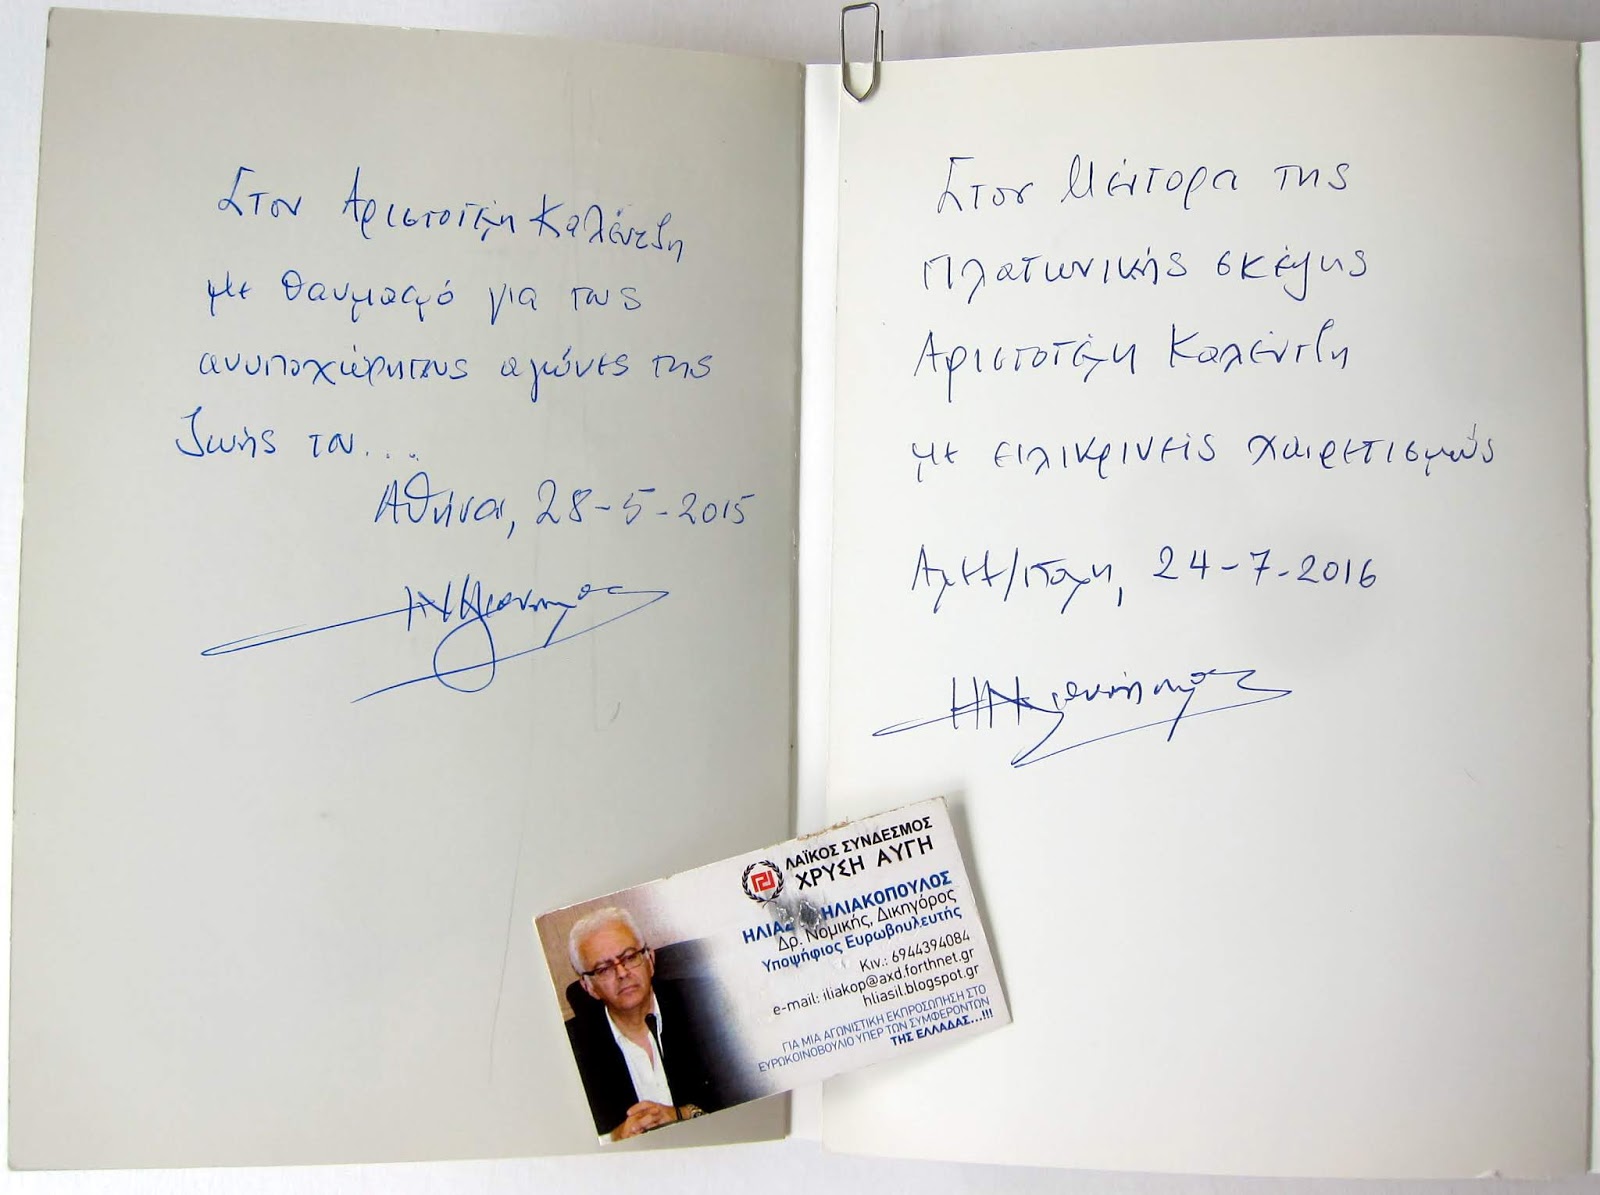 Στον Αριστοτέλη Καλέντζη
με θαυμασμό για τους
ανυποχώρητους αγώνες της
ζωής του...
Αθήνα, 28-5-2015
Στον Μέντορα της
Πλατωνικής σκέψης
Αριστοτέλη Καλέντζη
με ειλικρινείς χαιρετισμούς
Αλεξ/πολη, 24-7-2016
ΛΑΪΚΟΣ ΣΥΝΔΕΣΜΟΣ
ΧΡΥΣΗ ΑΥΓΗ
ΗΛΙΑΣ ΗΛΙΑΚΟΠΟΥΛΟΣ
Δρ. Νομικής, Δικηγόρος
Υποψήφιος Ευρωβουλευτής
Κιν.: 6944394084
e-mail: iliakop@axd.forthnet.gr
hliasil.blogspot.gr
ΓΙΑ ΜΙΑ ΑΓΩΝΙΣΤΙΚΗ ΕΚΠΡΟΣΩΠΗΣΗ ΣΤΟ
ΕΥΡΩΚΟΙΝΟΒΟΥΛΙΟ ΥΠΕΡ ΤΩΝ ΣΥΜΦΕΡΟΝΤΩΝ
ΤΗΣ ΕΛΛΑΔΑΣ...!!!